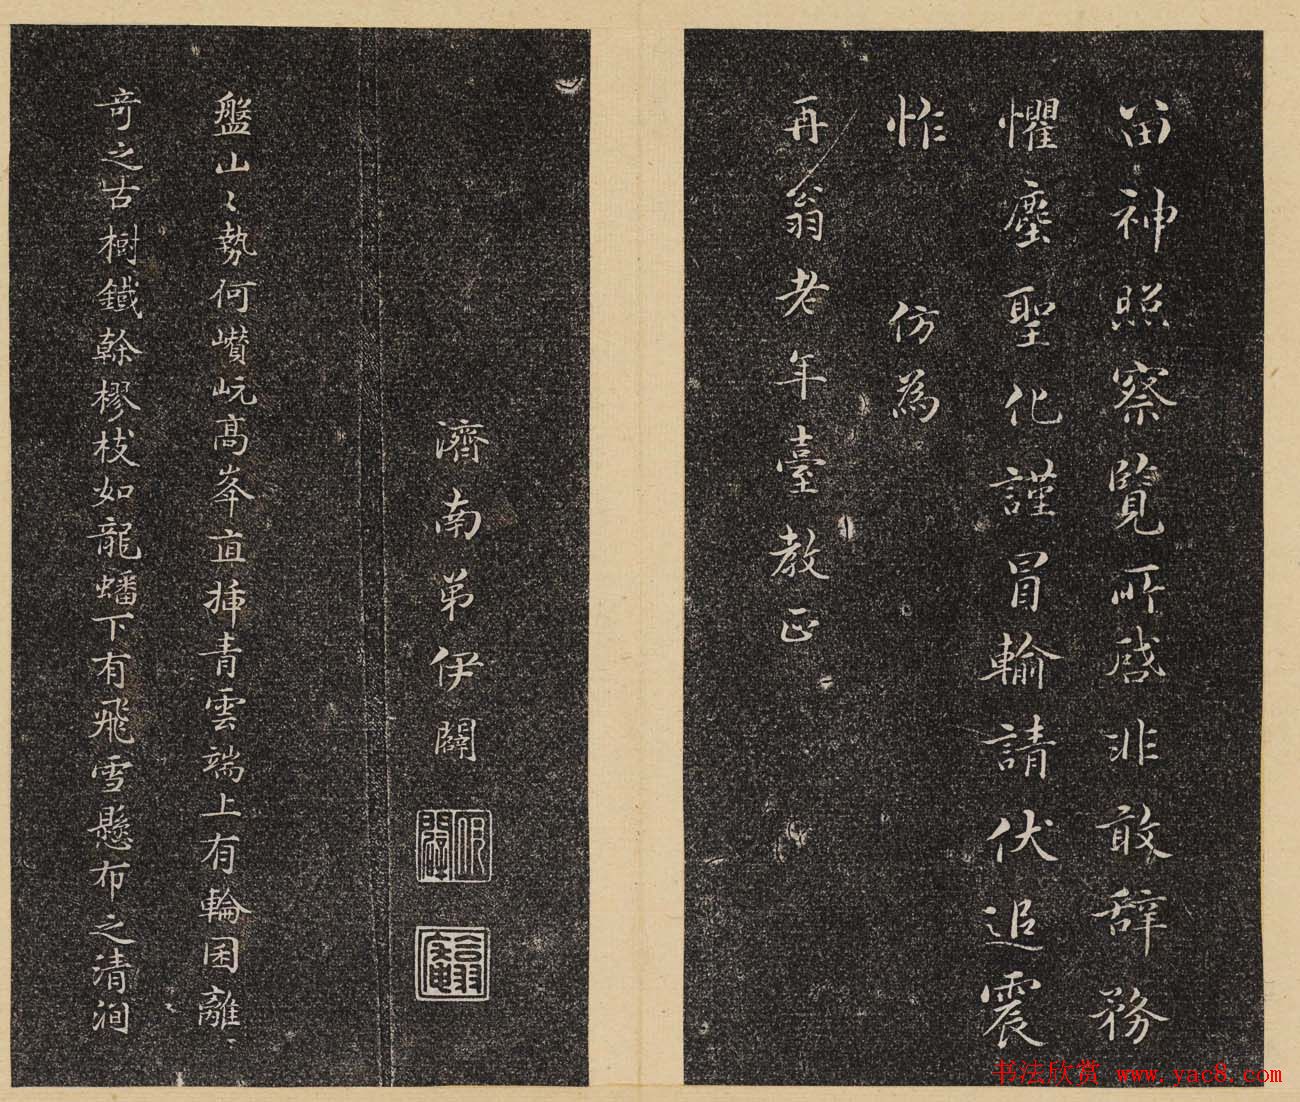 留神照察覽所啓非敢辞務
懼塵聖化謹冒輸請伏追震
怍 仿為
再翁老年臺教正
濟南弟伊闢
伊闢
翕菴
盤山〻勢何巑岏高峯直插青雲端上有輪囷離
奇之古樹鐵榦樛枝如龍蟠下有飛雪懸布之清澗
书法欣赏 www.yac8.com